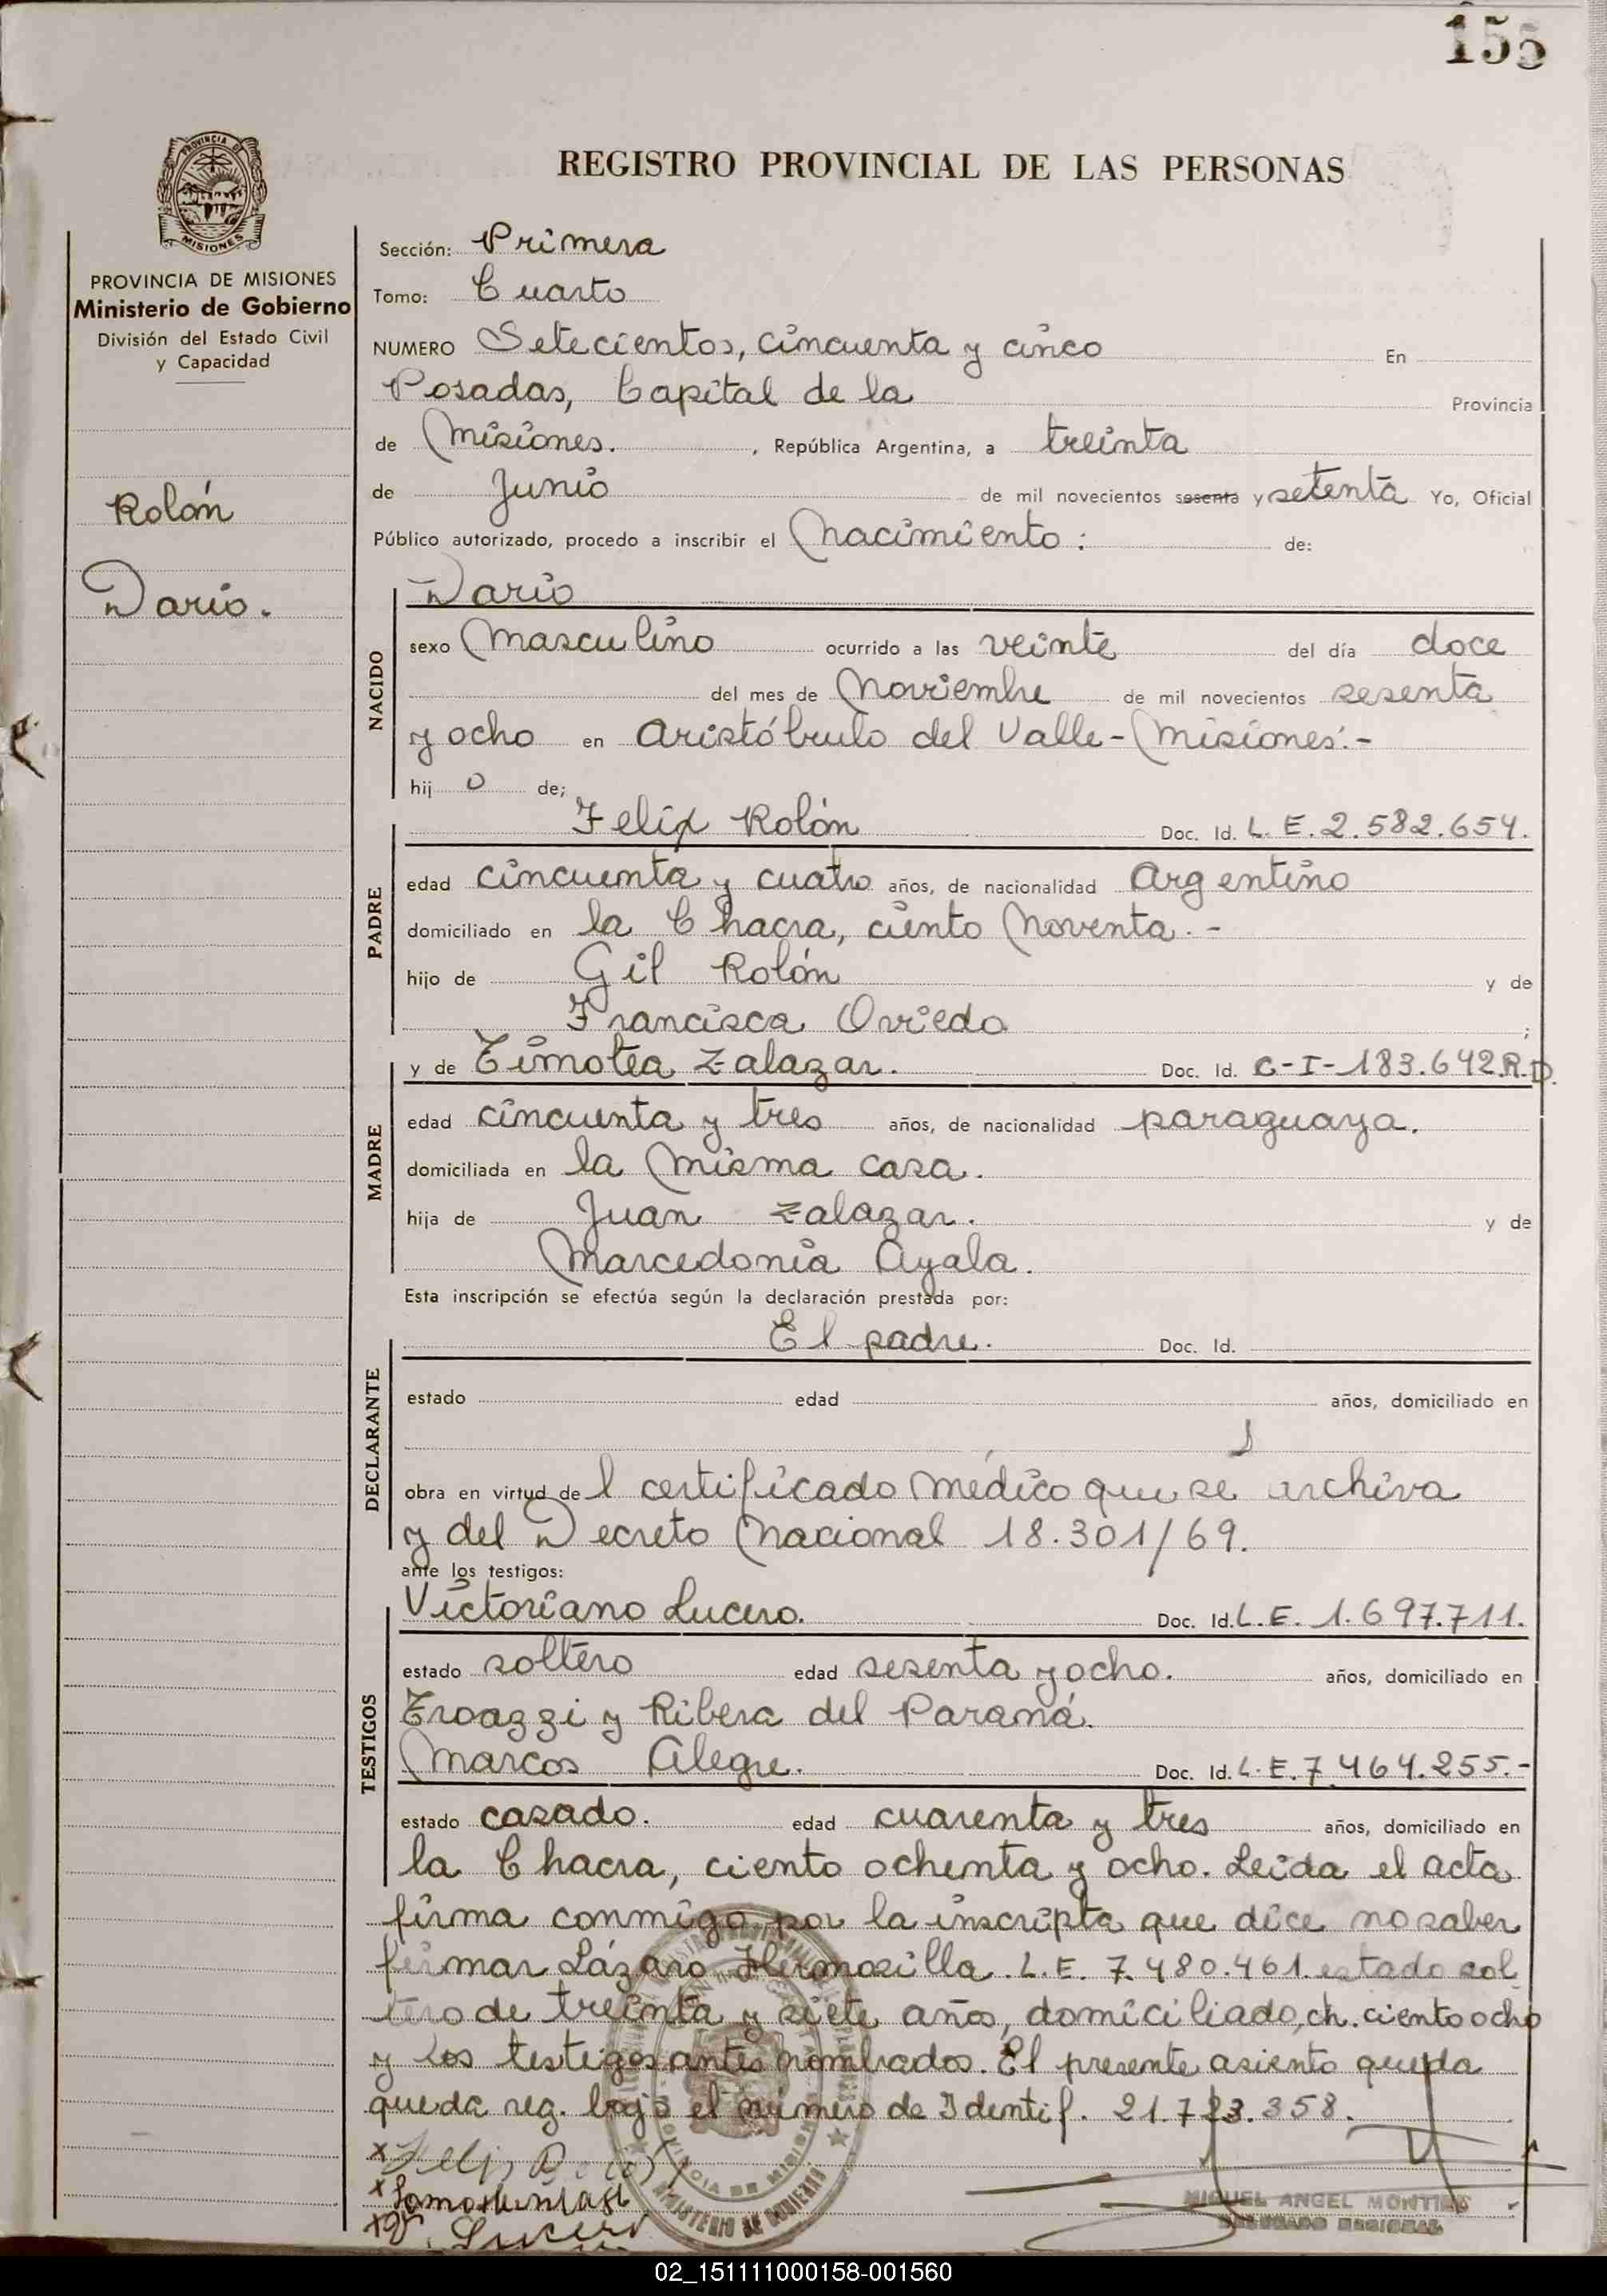 155
PROVINCIA DE
MISIONES
PROVINCIA DE MISIONES
Ministerio de Gobierno
División del Estado Civil
y Capacidad
Rolón
Dario.
REGISTRO PROVINCIAL DE LAS PERSONAS
Sección: Primera
Tomo: Cuarto
NUMERO Setecientos, cincuenta y cinco En
Posadas, Capital de la Provincia
de Misiones. , República Argentina, a treinta
de Junio de mil novecientos sesenta y setenta Yo, Oficial
Público autorizado, procedo a inscribir el Nacimiento: de:
Dario
NACIDO
sexo Masculino ocurrido a las veinte del día doce
del mes de Noviembre de mil novecientos sesenta
y ocho en Aristóbulo del Valle - Misiones.-
hij o de;
Felix Rolón Doc. Id. L.E. 2.582.654.
PADRE
edad cincuenta y cuatro años, de nacionalidad Argentino
domiciliado en la Chacra, ciento Noventa.-
hijo de Gil Rolón y de
Francisca Oviedo ;
y de Timotea Zalazar. Doc. Id. C-I-183.642.R.D.
MADRE
edad cincuenta y tres años, de nacionalidad paraguaya.
domiciliada en la Misma casa.
hija de Juan Zalazar. y de
Marcedonia Ayala.
Esta inscripción se efectúa según la declaración prestada por:
El padre. Doc. Id.
DECLARANTE
estado edad años, domiciliado en
obra en virtud de l certificado Médico que se archiva
y del Decreto Nacional 18.301/69.
ante los testigos:
Victoriano Lucero. Doc. Id. L.E. 1.697.711.
TESTIGOS
estado soltero edad sesenta y ocho. años, domiciliado en
Troazzi y Ribera del Paraná.
Marcos Alegre. Doc. Id. L.E. 7.464.255.-
estado casado. edad cuarenta y tres años, domiciliado en
la Chacra, ciento ochenta y ocho. Leida el acta
firma conmigo por la inscripta que dice no saber
firmar Lázaro Hermosilla. L.E. 7.480.461. estado sol
tero de treinta y siete años, domiciliado, ch. ciento ocho
y los testigos antes nombrados. El presente asiento queda
queda reg. bajo el número de Identif. 21.723.358.
MINISTERIO DE GOBIERNO
MIGUEL ANGEL
DELEGADO REGIONAL
Lucero
02_151111000158-001560